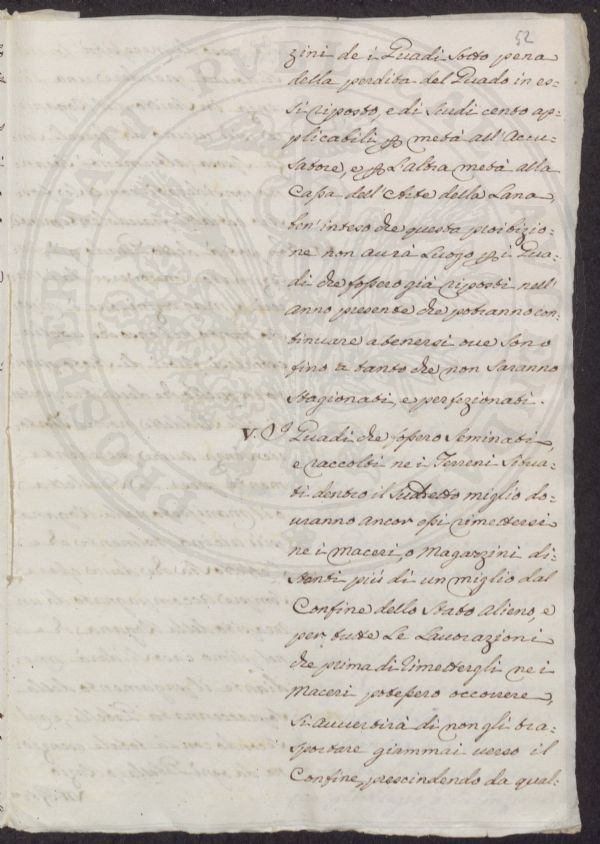 52
zini de i Guadi sotto pena
della perdita del Guado in es=
si riposto, e di Scudi cento ap=
plicabili p metà all'Accu=
satore, e p l'altra metà alla
Casa dell'Arte della Lana,
ben'inteso che questa proibizio=
ne non avrà Luogo p i Gua=
di che fossero già riposti nell'
anno presente che potranno con=
tinuare a tenersi ove sono
fino a tanto che non saranno
stagionati, e perfezionati.
V. I Guadi che fossero seminati,
e raccolti ne i Terreni situa=
ti dentro il sudetto miglio do=
vranno ancor essi rimettersi
ne i maceri, o Magazzini di=
stanti più di un miglio dal
Confine dello Stato alieno, e
per tutte le Lavorazioni
che prima di rimettergli ne i
Maceri potessero occorrere,
si avvertirà di non gli tra=
sportare giammai verso il
Confine, prescindendo da qual=
PROSPERITATI PUBLICAE